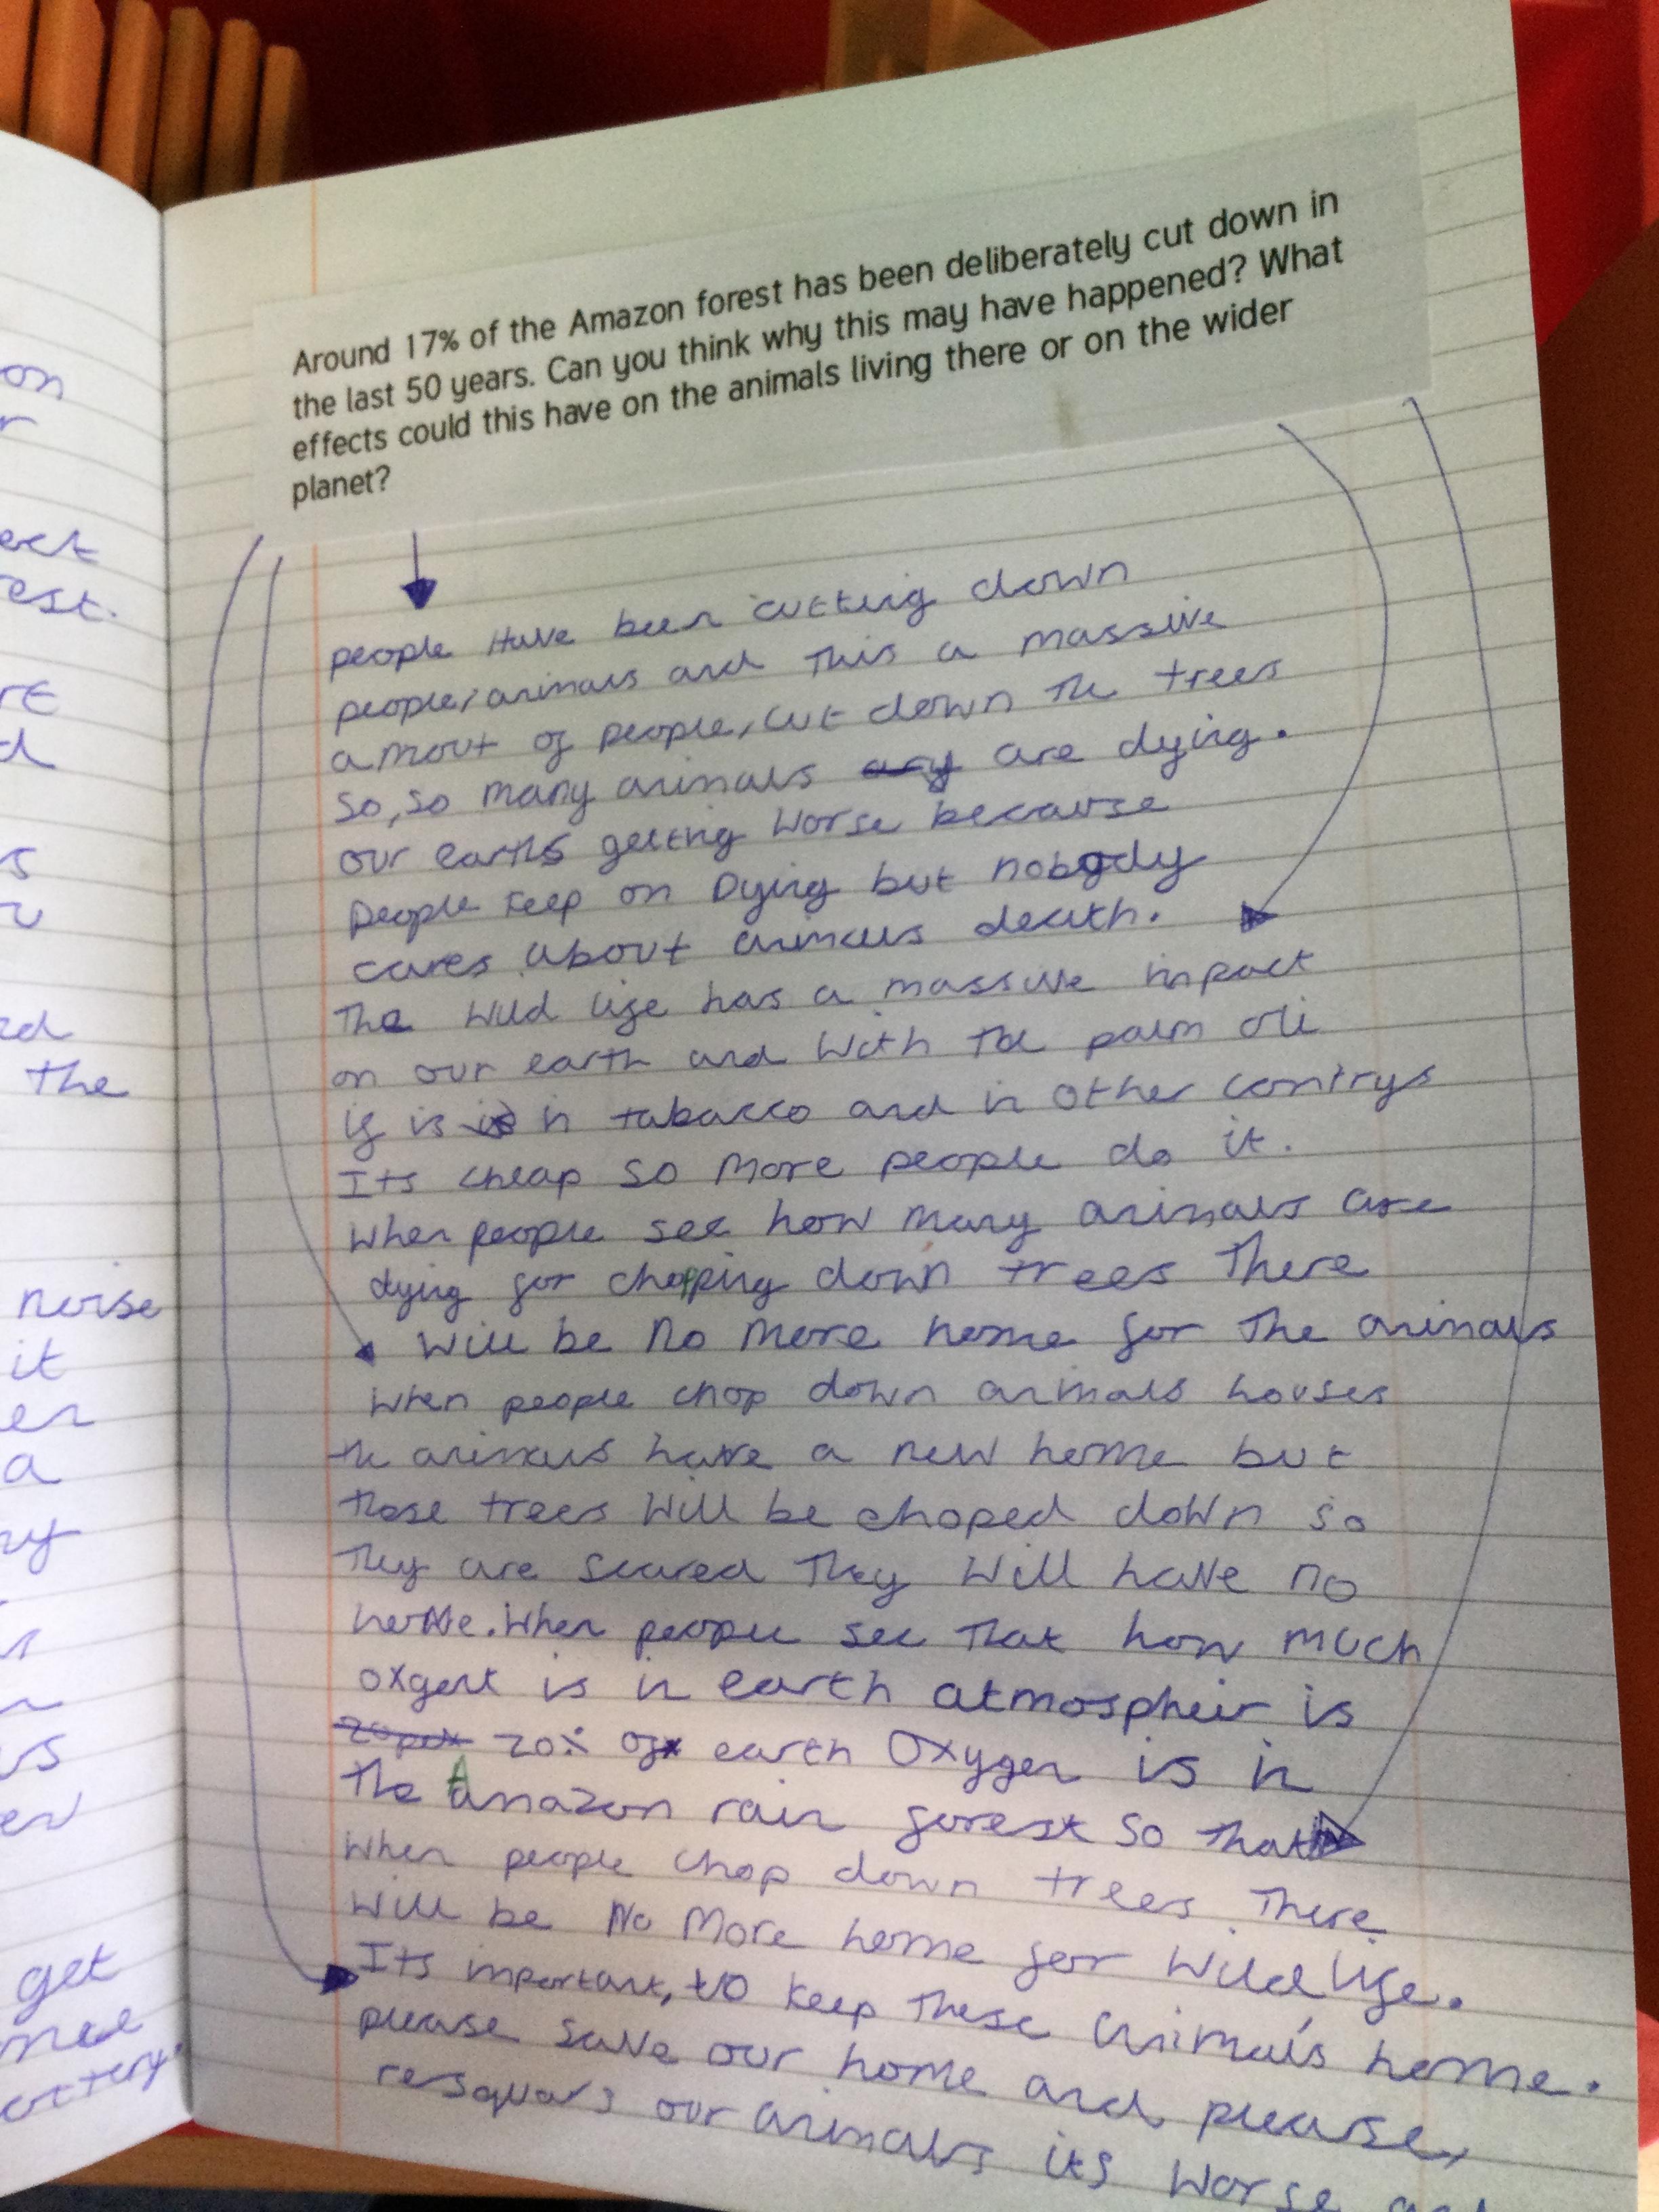 on
r
ect
est.
re
d
s
the
noise
it
er
a
ry
us
get
Around 17% of the Amazon forest has been deliberately cut down in
the last 50 years. Can you think why this may have happened? What
effects could this have on the animals living there or on the wider
planet?
people Have been cutting down
people, animals and This a massive
amout of people, cut down the trees
so, so many animals are dying.
our earths getting worse because
People keep on Dying but nobody
cares about animals death.
The wild life has a massive impact
on our earth and with the palm oli
if is in tabacco and in other contrys
Its cheap so more people do it.
when people see how many animals are
dying for chopping down trees There
will be no more home for the animals
when people chop down animals houses
the animals have a new home but
those trees will be choped down so
They are scared They will have no
home. When people see That how much
oxgent is in earth atmospheir is
20% of earth Oxygen is in
the Amazon rain forest so that
when people chop down trees There
will be No More home for wild life.
Its important, to keep These animals home.
please save our home and please,
resquars our animals its worse